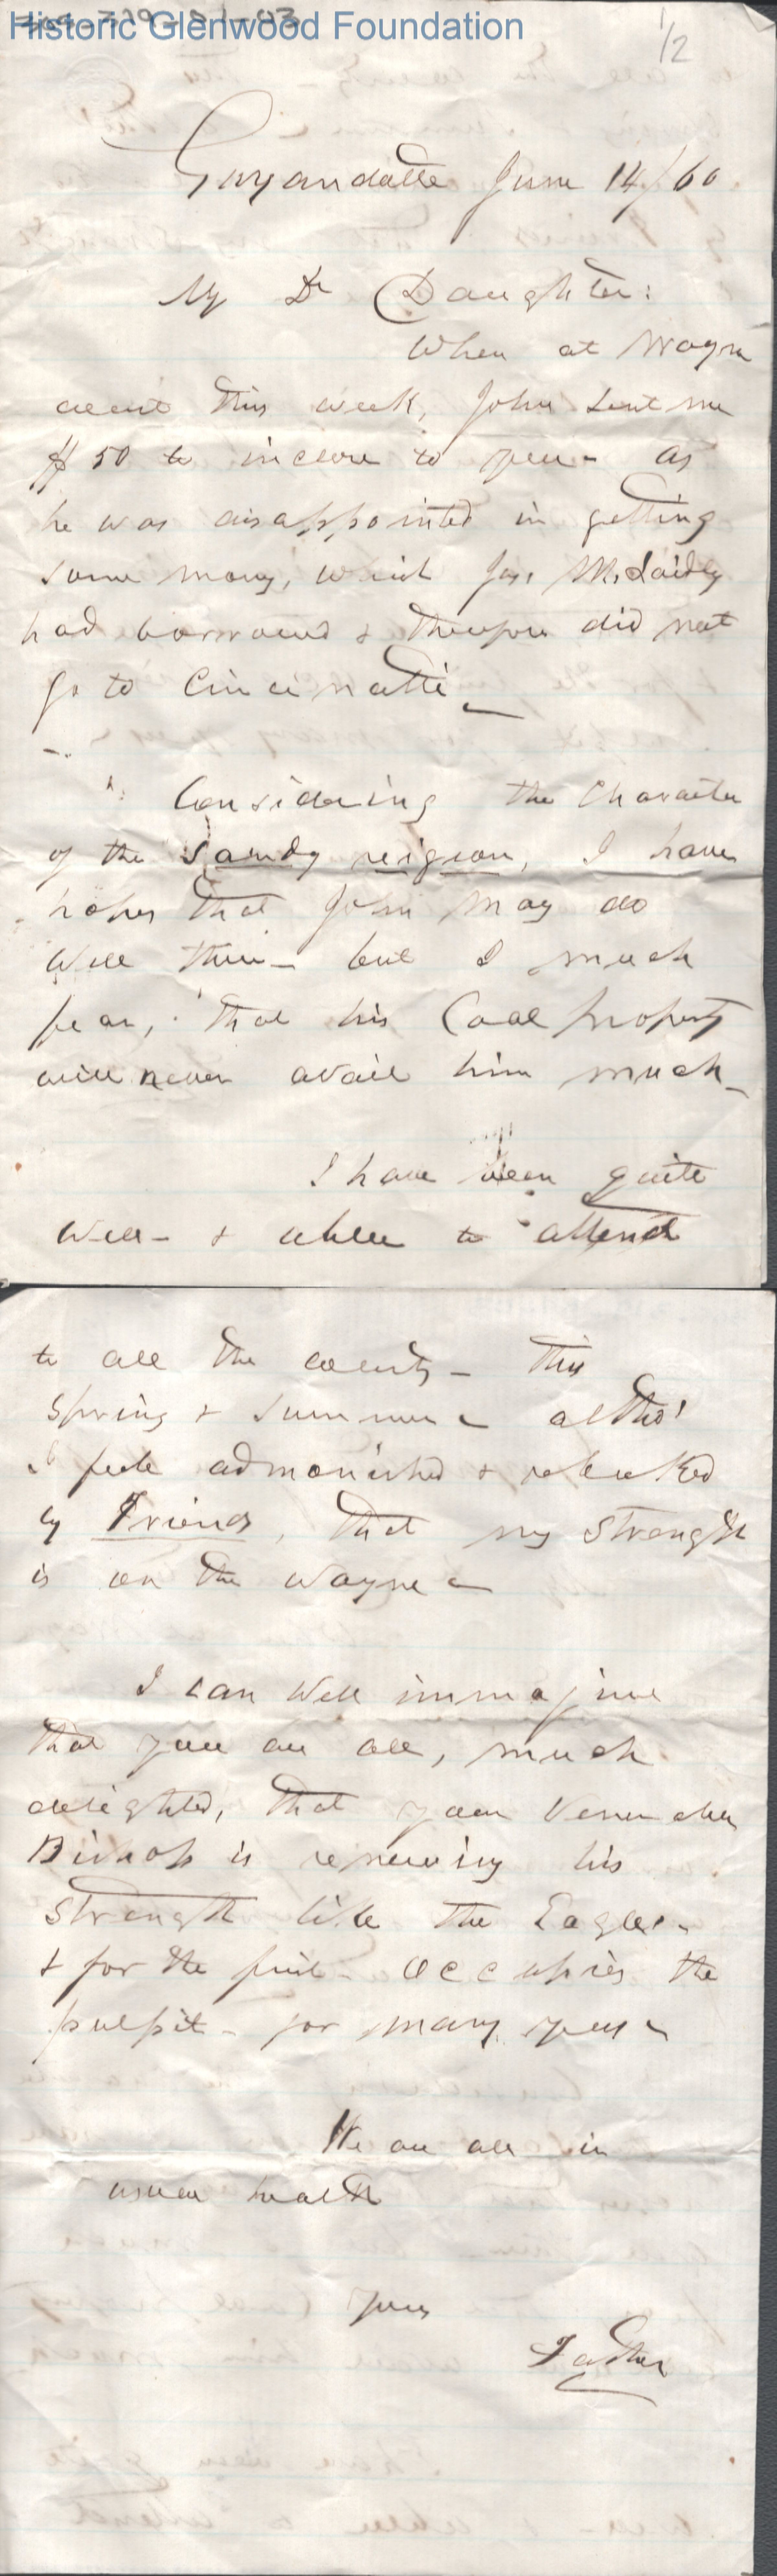 Historic Glenwood Foundation
1/2
Guyandotte June 14/60
My Dr Daughter:
When at Wayne
court this week, John sent me
$50 to inclose to you - as
he was disappointed in getting
some mony, which Jas M. Laidley
had borrowed & therefore did not
go to Cincinatti -
Considering the Character
of the Sandy reigion, I have
hopes that John may do
well there - but I much
fear, that his Coal property
will never avail him much -
I have been quite
well - & able to attend
to all the courts - this
Spring & Summer - altho'
I feele admonished & rebuked
by Friends, that my strength
is on the wayne -
I can well immagine
that you are all, much
delighted, that your Venerable
Bishop is renewing his
strength like the Eagles -
& for the first - occupies the
pulpit - for many years -
We are all in
usual health
Yours
Father